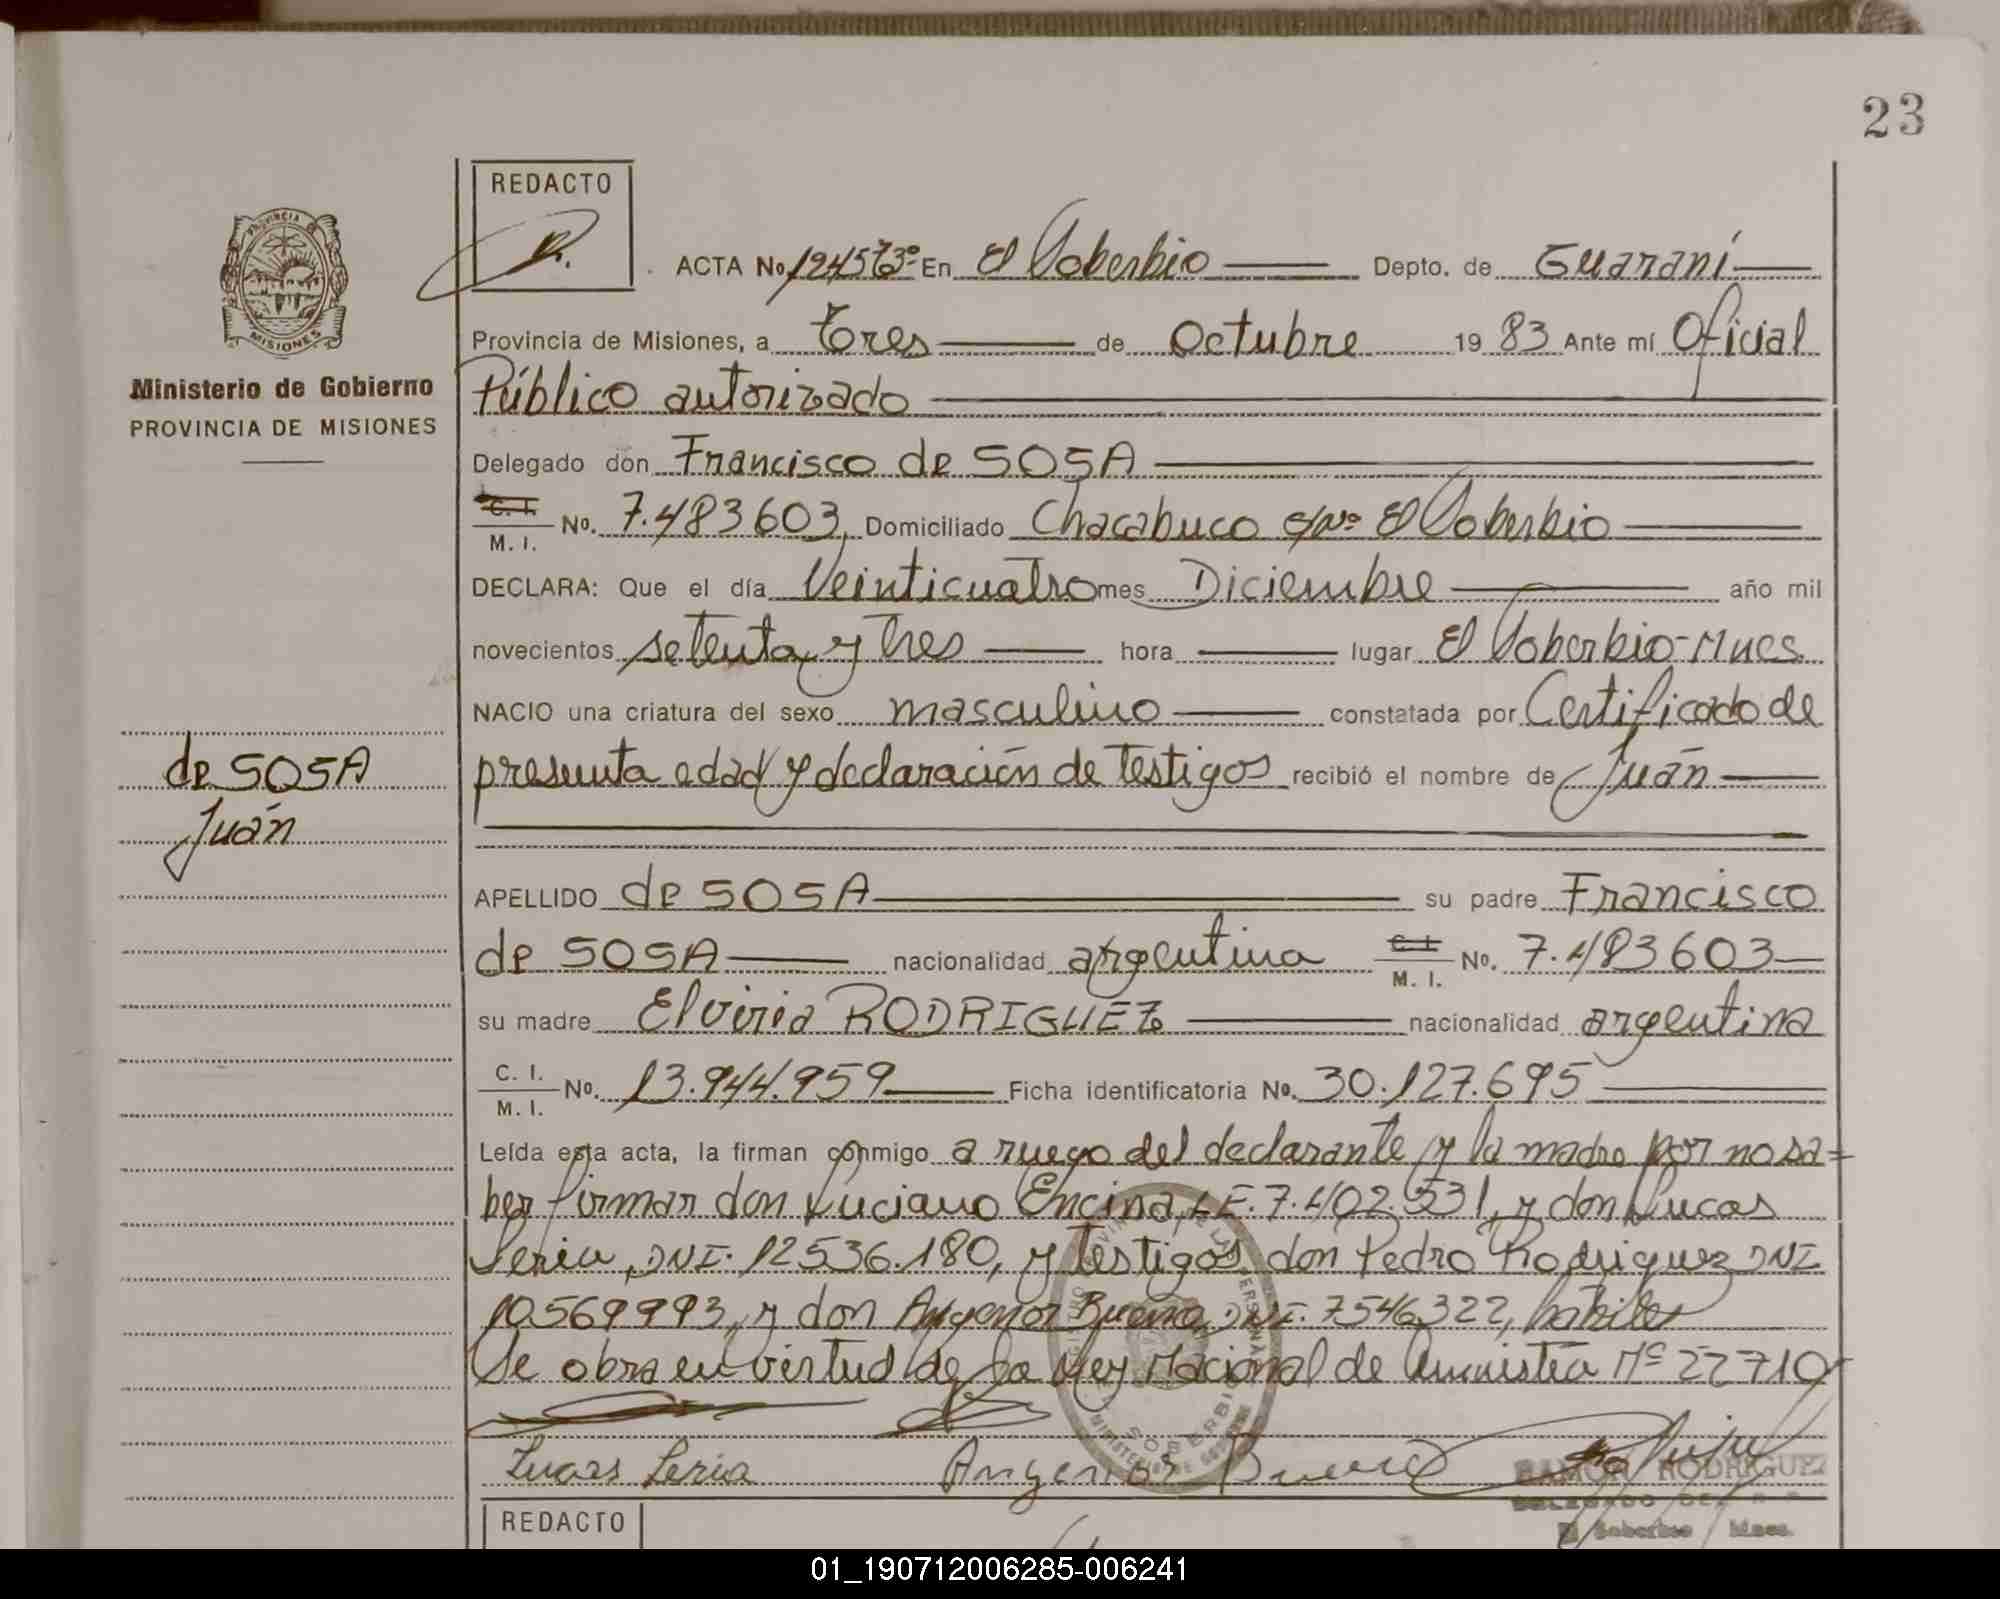 23
REDACTO
PROVINCIA
MISIONES
Ministerio de Gobierno
PROVINCIA DE MISIONES
ACTA No 124573º En El Soberbio Depto. de Guaraní
Provincia de Misiones, a tres de Octubre 1983 Ante mí Oficial
Público autorizado
Delegado don Francisco de SOSA
C. I. / M. I. No. 7.483603, Domiciliado Chacabuco s/nº El Soberbio
DECLARA: Que el día Veinticuatro mes Diciembre año mil
novecientos setenta y tres hora lugar El Soberbio-Mnes
NACIO una criatura del sexo masculino constatada por Certificado de
presunta edad y declaración de testigos recibió el nombre de Juán
de SOSA
Juán
APELLIDO de SOSA su padre Francisco
de SOSA nacionalidad argentina C. I. / M. I. No. 7.483603
su madre Elviria RODRIGUEZ nacionalidad argentina
C. I. / M. I. No. 13.944.959 Ficha identificatoria No. 30.127.695
Leída esta acta, la firman conmigo a ruego del declarante y la madre por no sa=
ber firmar don Luciano Encina, LE.7.402.531, y don Lucas
Seria, DNI. 12536.180, y testigos don Pedro Rodriguez DNI
10.569993, y don Angenor Bueno, DNI. 7546322, hábiles
Se obra en virtud de la Ley Nacional de Amnistía Nº 22710
Lucas Seria Angenor Bueno
RAMON RODRIGUEZ
DELEGADO DEL R. P.
El Soberbio Mnes.
SOBERBIO
REDACTO
01_190712006285-006241